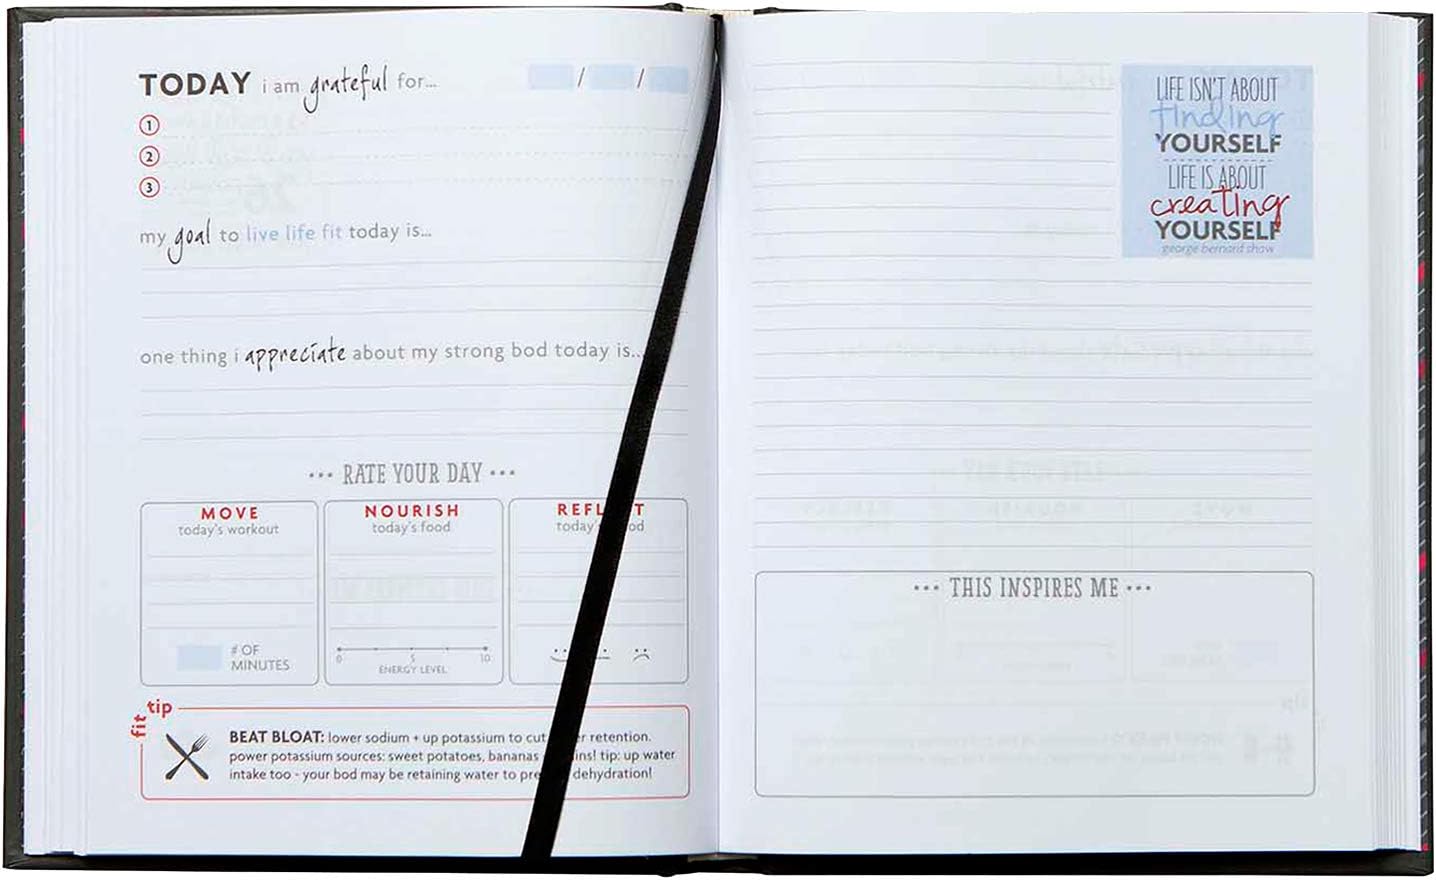 TODAY i am grateful for...
/ /
1
2
3
my goal to live life fit today is...
one thing i appreciate about my strong bod today is...
··· RATE YOUR DAY ···
MOVE
today's workout
# OF
MINUTES
NOURISH
today's food
0 5 10
ENERGY LEVEL
today's
fit tip
BEAT BLOAT: lower sodium + up potassium to cut retention.
power potassium sources: sweet potatoes, bananas tip: up water
intake too - your bod may be retaining water to dehydration!
LIFE ISN'T ABOUT
finding
YOURSELF
LIFE IS ABOUT
creating
YOURSELF
george bernard shaw
··· THIS INSPIRES ME ···